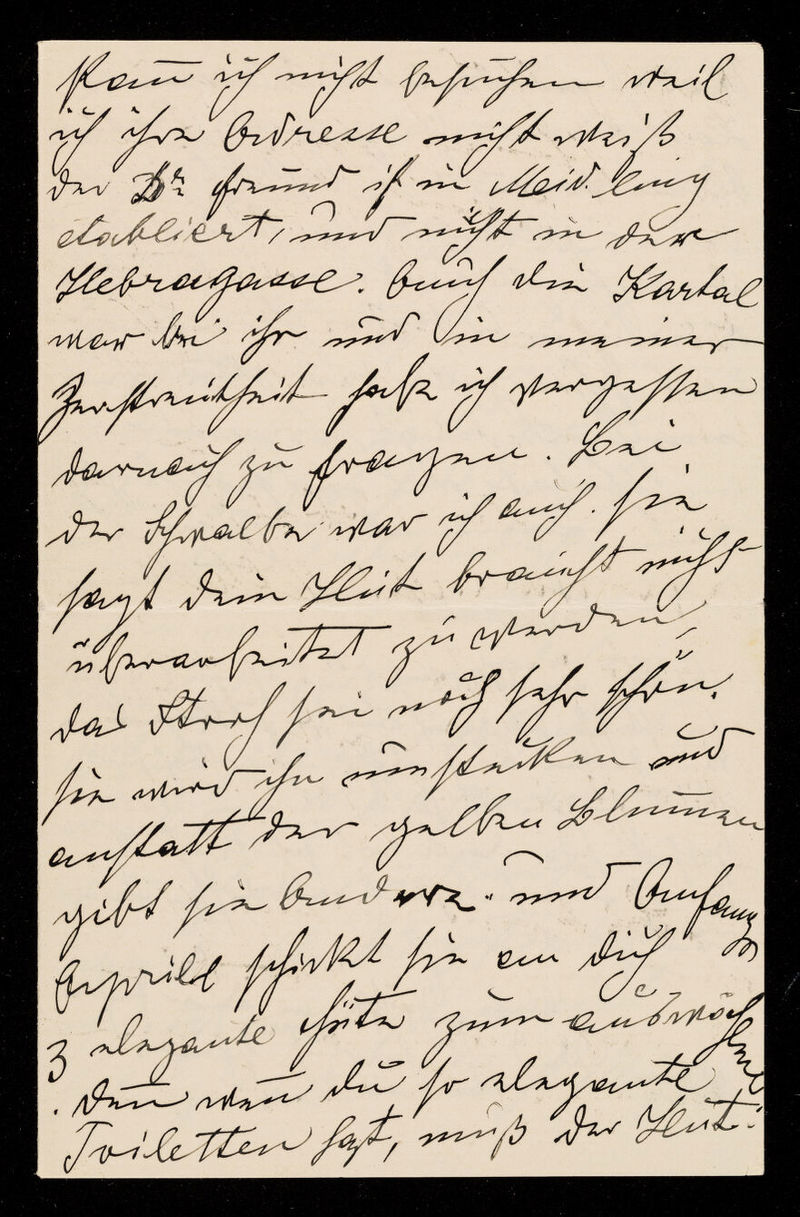 kan̄ ich nicht besuchen weil
ich ihre Adresse nicht weiß
der Dr. Freund ist in Meidling
etabliert, und nicht in der
Hebragasse. Auch die Kartal
war bei ihr und in meiner
Zerstreutheit habe ich vergessen
darnach zu fragen. Bei
der Schwalbe war ich auch. sie
sagt dein Hut braucht nicht
überarbeitet zu werden,
das Stroh sei noch sehr schön.
sie wird ihn umstecken und
anstatt der gelben Blum̄en
gibt sie Andere. und Anfangs
Aprill schickt sie an dich
3 elegante Hüte zum auswählen
. den̄ wen̄ du so elegante
Toiletten hast, muß der Hut